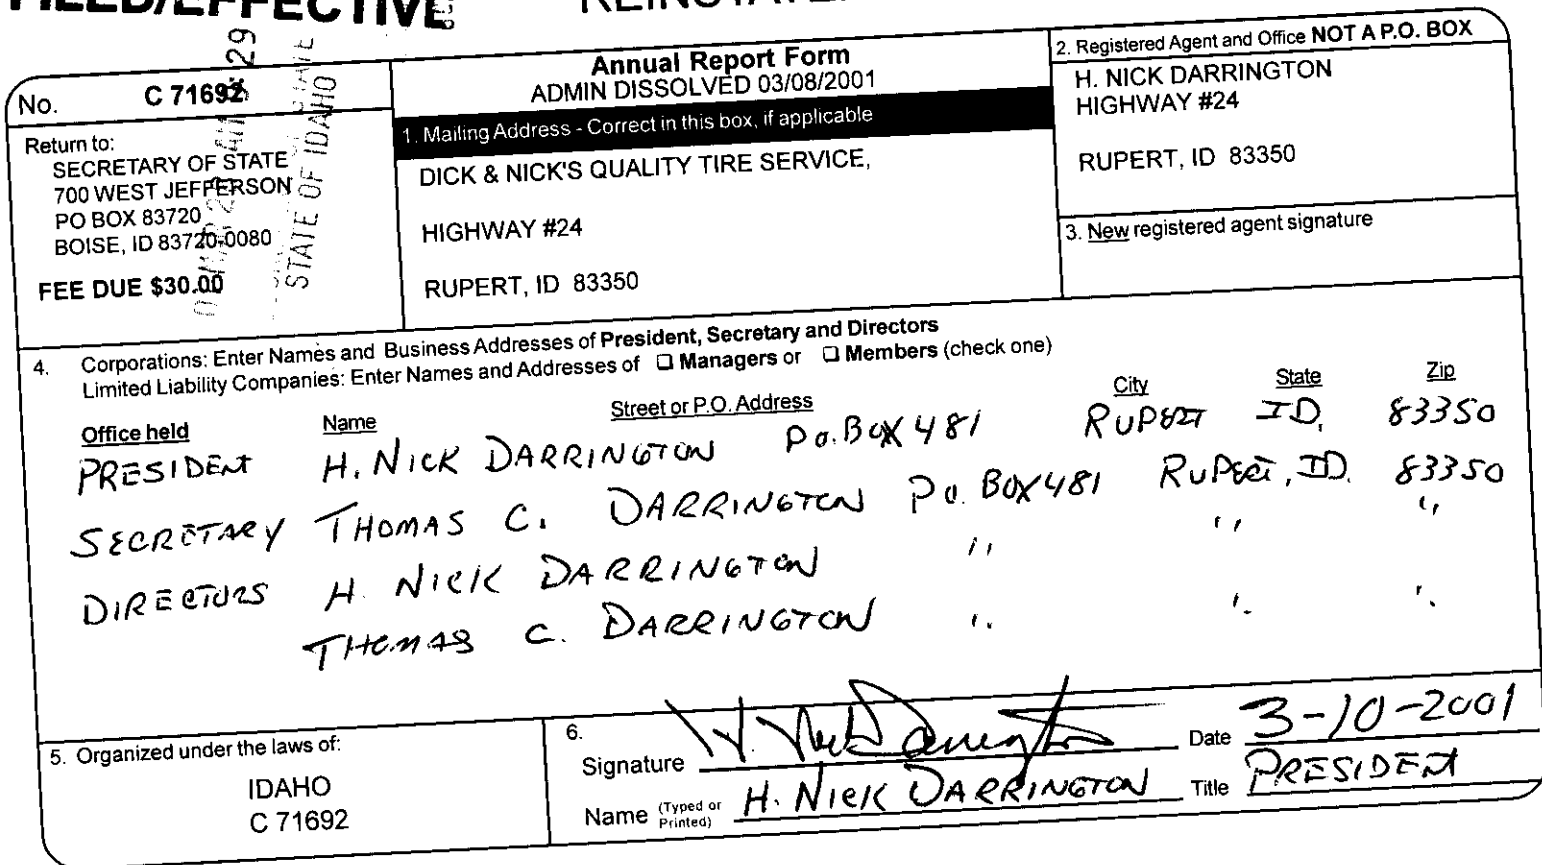 FILED/EFFECTIVE
No. C 71692
Return to:
SECRETARY OF STATE
700 WEST JEFFERSON
PO BOX 83720
BOISE, ID 83720-0080
FEE DUE $30.00
STATE OF IDAHO
Annual Report Form
ADMIN DISSOLVED 03/08/2001
1. Mailing Address - Correct in this box, if applicable
DICK & NICK'S QUALITY TIRE SERVICE,
HIGHWAY #24
RUPERT, ID 83350
2. Registered Agent and Office NOT A P.O. BOX
H. NICK DARRINGTON
HIGHWAY #24
RUPERT, ID 83350
3. New registered agent signature
4. Corporations: Enter Names and Business Addresses of President, Secretary and Directors
Limited Liability Companies: Enter Names and Addresses of ❑ Managers or ❑ Members (check one)
Office held Name Street or P.O. Address City State Zip
PRESIDENT H. NICK DARRINGTON P.O. BOX 481 RUPERT ID, 83350
SECRETARY THOMAS C. DARRINGTON P.O. BOX 481 RUPERT, ID. 83350
DIRECTORS H. NICK DARRINGTON " " "
THOMAS C. DARRINGTON " " "
5. Organized under the laws of:
IDAHO
C 71692
6.
Signature H. Nick Darrington Date 3-10-2001
Name (Typed or Printed) H. NICK DARRINGTON Title PRESIDENT